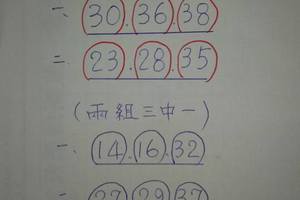 一、30.36.38
二 23.28.35
(兩組三中一)
一、14.16.32
二 27.29.37